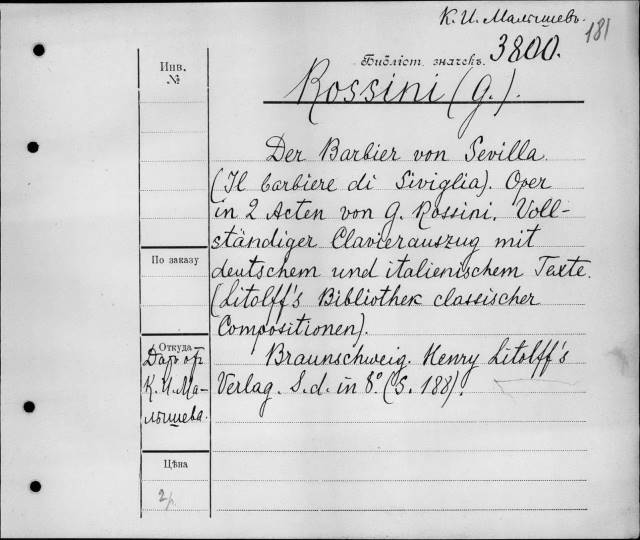 К. И. Малышевъ.
181
Библіот. значекъ. 3800.
Инв.
№
Rossini (G.).
Der Barbier von Sevilla.
(Il barbiere di Siviglia). Oper
in 2 Acten von G. Rossini. Voll-
ständiger Clavierauszug mit
deutschem und italienischem Texte.
(Litolff's Bibliothek classischer
Compositionen).
Braunschweig. Henry Litolff's
Verlag. S.d. in 8º. (S. 188).
По заказу
Откуда
Даръ от
К. И. Ма-
лышева.
Цѣна
2р.